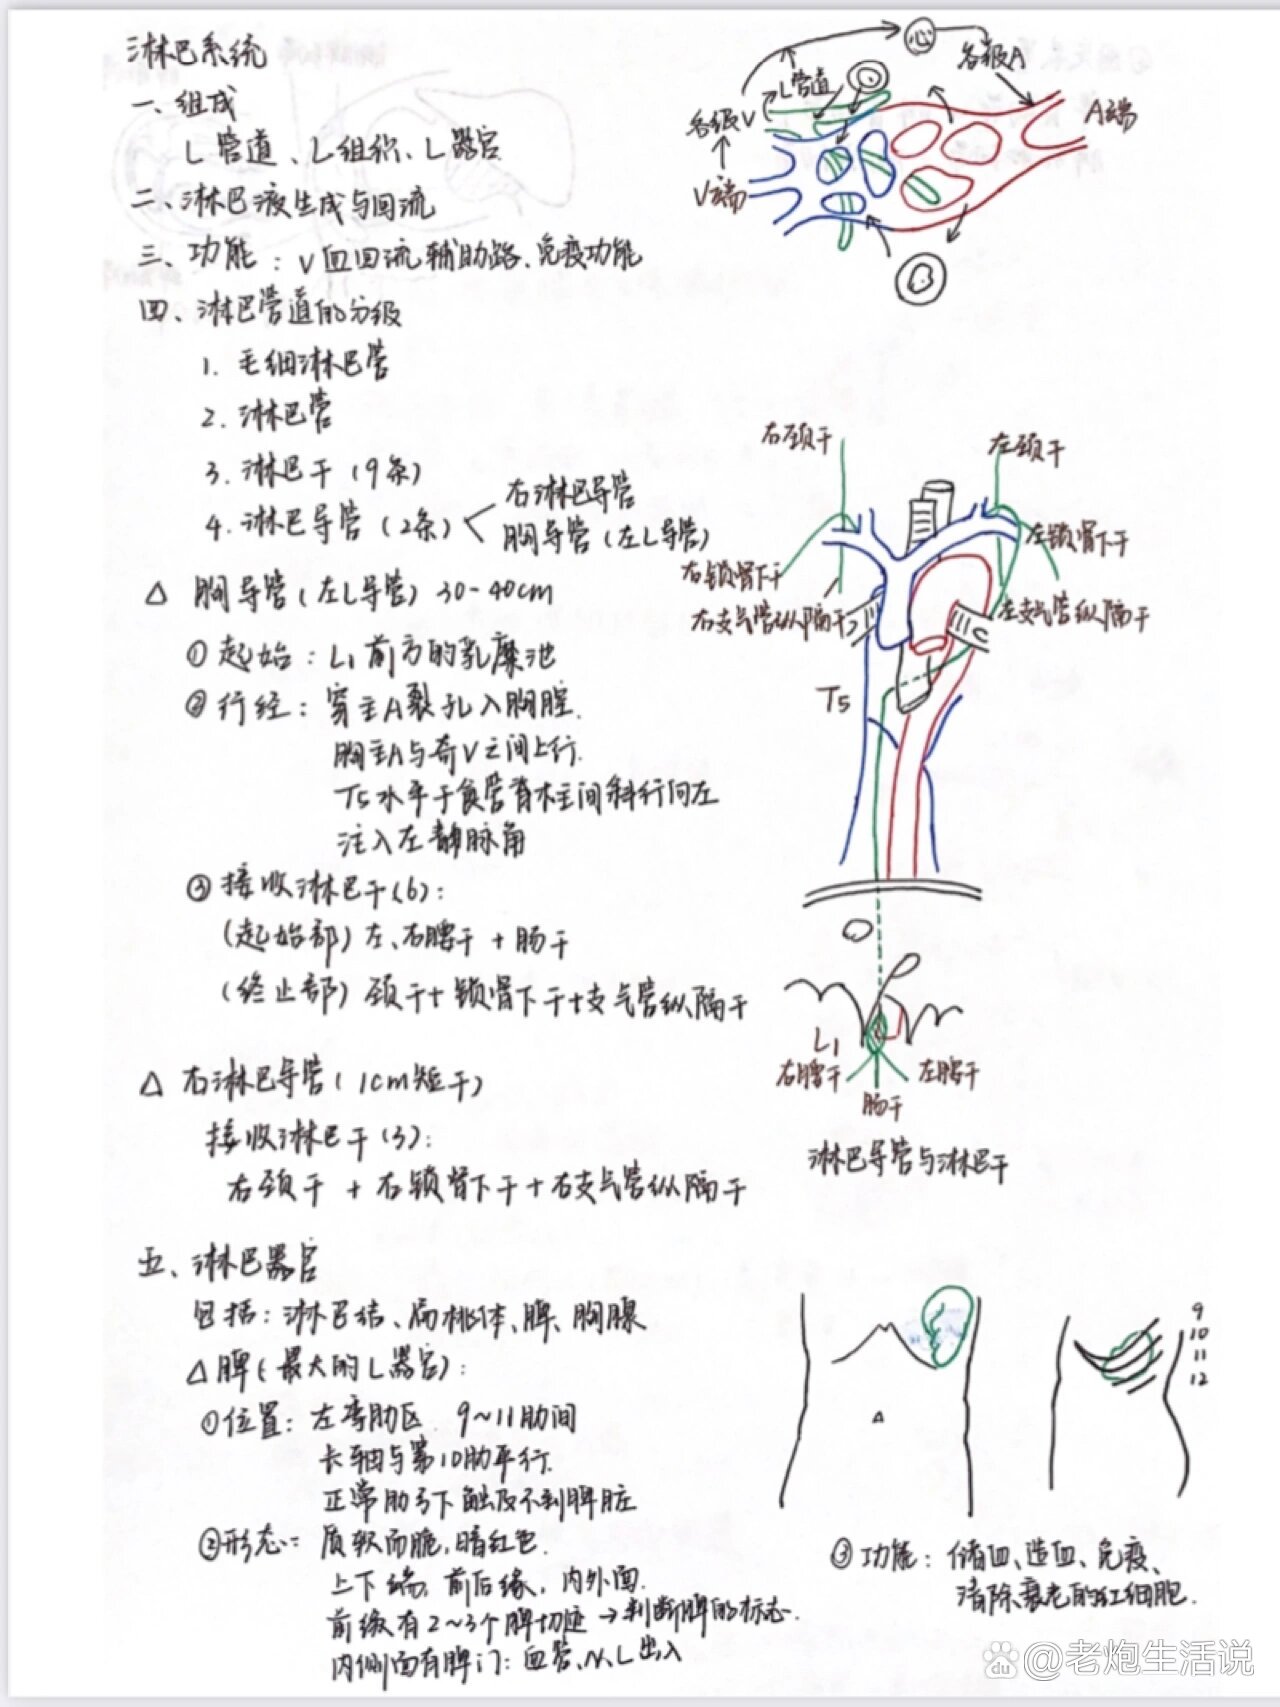 淋巴系统
一、组成
L管道、L组织、L器官
二、淋巴液生成与回流
三、功能：V血回流辅助路、免疫功能
四、淋巴管道的分级
1. 毛细淋巴管
2. 淋巴管
3. 淋巴干（9条）
4. 淋巴导管（2条）
右淋巴导管
胸导管（左L导管）
△ 胸导管（左L导管）30-40cm
①起始：L1前方的乳糜池
②行经：穿主A裂孔入胸腔.
胸主A与奇V之间上行.
T5水平于食管脊柱间斜行向左
注入左静脉角
③接收淋巴干(6)：
(起始部)左、右腰干+肠干
(终止部)颈干+锁骨下干+支气管纵隔干
△ 右淋巴导管（1cm短干）
接收淋巴干(3)：
右颈干+右锁骨下干+右支气管纵隔干
五、淋巴器官
包括：淋巴结、扁桃体、脾、胸腺
△脾（最大的L器官）：
①位置：左季肋区 9~11肋间
长轴与第10肋平行.
正常肋弓下触及不到脾脏
②形态：质软而脆,暗红色.
上下端,前后缘,内外面.
前缘有2~3个脾切迹→判断脾的标志.
内侧面有脾门：血管、N、L出入
心
各级A
L管道
各级V
A端
V端
右颈干
左颈干
左锁骨下干
右锁骨下干
右支气管纵隔干
左支气管纵隔干
T5
L1
右腰干
左腰干
肠干
淋巴导管与淋巴干
9
10
11
12
③功能：储血、造血、免疫、
清除衰老的红细胞.
Bai du
@老炮生活说